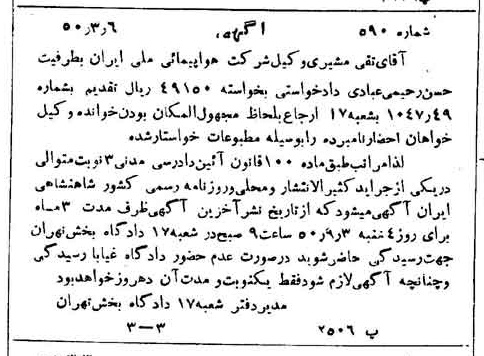 شماره ۵۹۰ آگهی ۵۰٫۳٫۶
آقای تقی مشیری وکیل شرکت هواپیمائی ملی ایران بطرفیت
حسن رحیمی عبادی دادخواستی بخواسته ۴۹۱۵۰ ریال تقدیم بشماره
۱۰۴۷٫۴۹ بشعبه ۱۷ ارجاع بلحاظ مجهول المکان بودن خوانده وکیل
خواهان احضار نامبرده را بوسیله مطبوعات خواستار شده
لذا مراتب طبق ماده ۱۰۰ قانون آئین دادرسی مدنی ۳ نوبت متوالی
در یکی از جراید کثیرالانتشار و محلی و روزنامه رسمی کشور شاهنشاهی
ایران آگهی میشود که از تاریخ نشر آخرین آگهی ظرف مدت ۳ ماه
برای روز ۴ شنبه ۵۰٫۹٫۳ ساعت ۹ صبح در شعبه ۱۷ دادگاه بخش تهران
جهت رسیدگی حاضر شوید در صورت عدم حضور دادگاه غیابا رسیدگی
و چنانچه آگهی لازم شود فقط یکنوبت و مدت آن ده روز خواهد بود
مدیر دفتر شعبه ۱۷ دادگاه بخش تهران
۳—۳ ب ۲۵۰۶